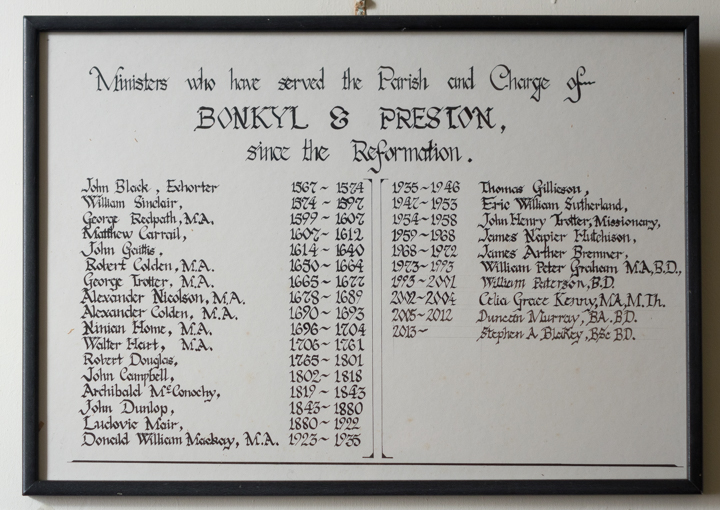 Ministers who have served the Parish and Charge of
BONKYL & PRESTON,
since the Reformation.
John Black, Exhorter 1567~1574
William Sinclair, 1574~1597
George Redpath, M.A. 1599~1607
Matthew Carrail, 1607~1612
John Gaittis, 1614~1640
Robert Colden, M.A. 1650~1664
George Trotter, M.A. 1665~1677
Alexander Nicolson, M.A. 1678~1689
Alexander Colden, M.A. 1690~1693
Ninian Home, M.A. 1696~1704
Walter Hart, M.A. 1706~1761
Robert Douglas, 1765~1801
John Campbell, 1802~1818
Archibald McConochy, 1819~1843
John Dunlop, 1843~1880
Ludovic Mair, 1880~1922
Donald William Mackay, M.A. 1923~1935
1935~1946 Thomas Gillieson,
1947~1953 Eric William Sutherland,
1954~1958 John Henry Trotter, Missionary,
1959~1968 James Napier Hutchison,
1968~1972 James Arther Bremner,
1973~1993 William Peter Graham M.A,B.D.,
1995~2001 William Paterson, B.D.
2002~2004 Celia Grace Kenny, MA, M.Th.
2005~2012 Duncan Murray, BA. BD.
2013~ Stephen A Blakey, BSc BD.